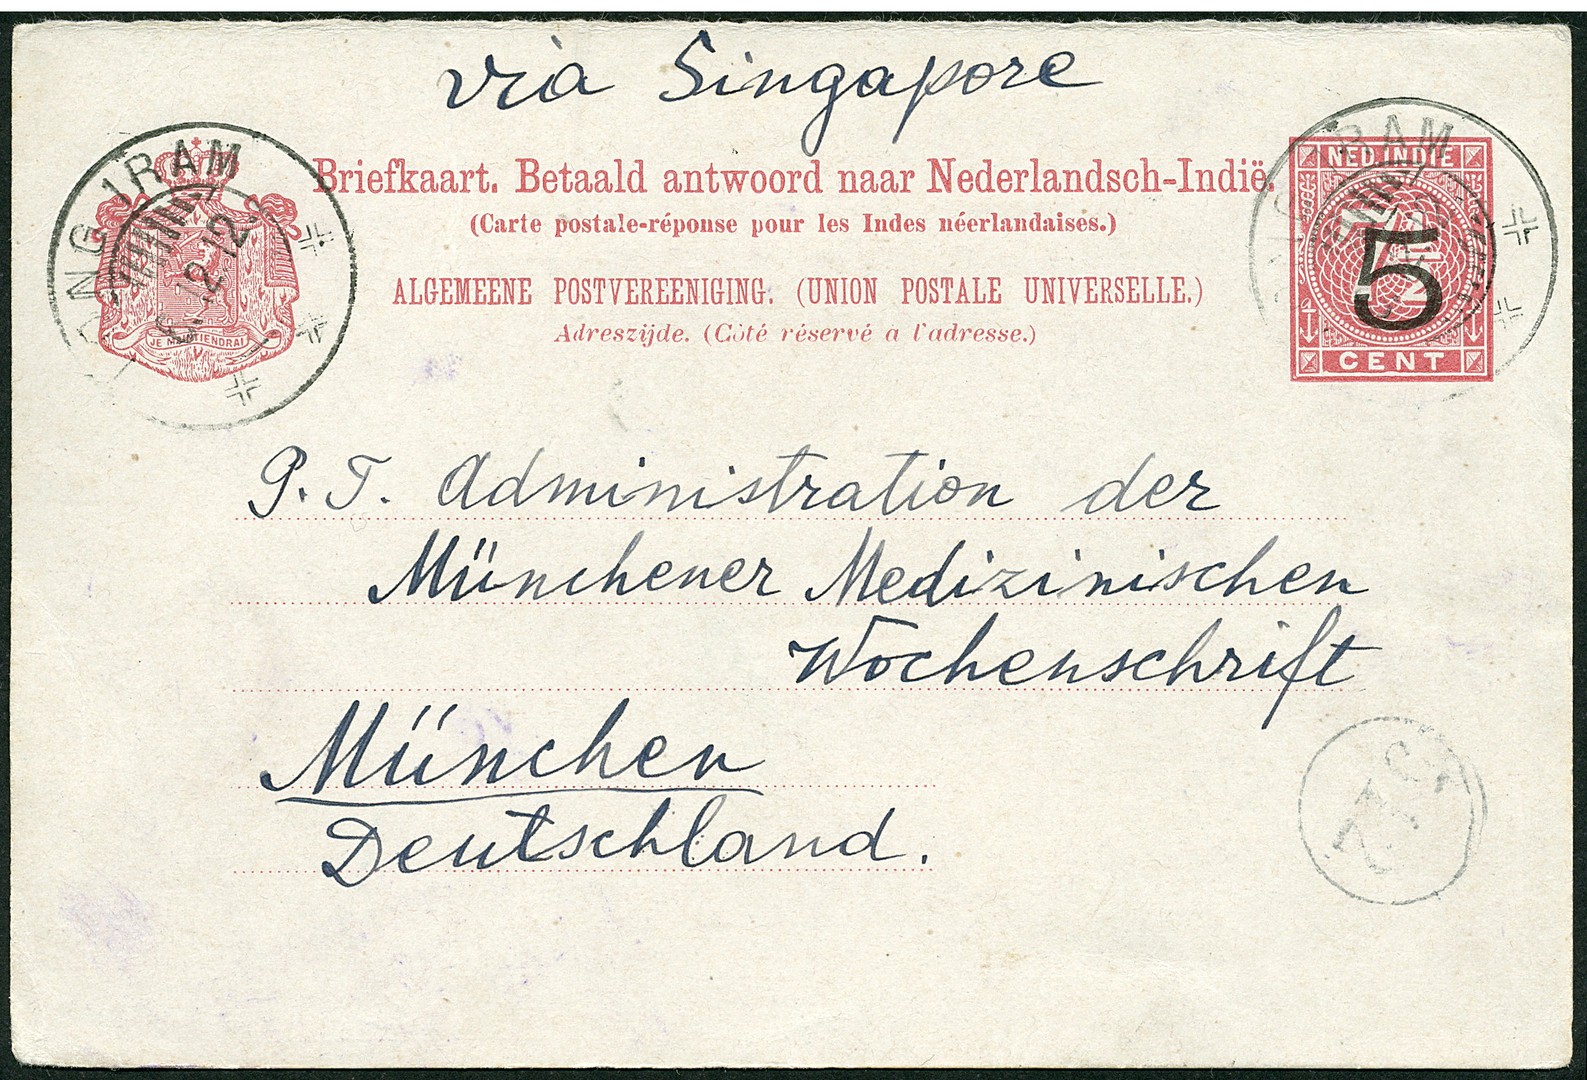 via Singapore
Briefkaart. Betaald antwoord naar Nederlandsch-Indië.
(Carte postale-réponse pour les Indes néerlandaises.)
ALGEMEENE POSTVEREENIGING. (UNION POSTALE UNIVERSELLE.)
Adreszijde. (Côté réservé a l'adresse.)
JE MAINTIENDRAI
NED. INDIE
5
CENT
P. T. Administration der
Münchener Medizinischen
Wochenschrift
München
Deutschland.